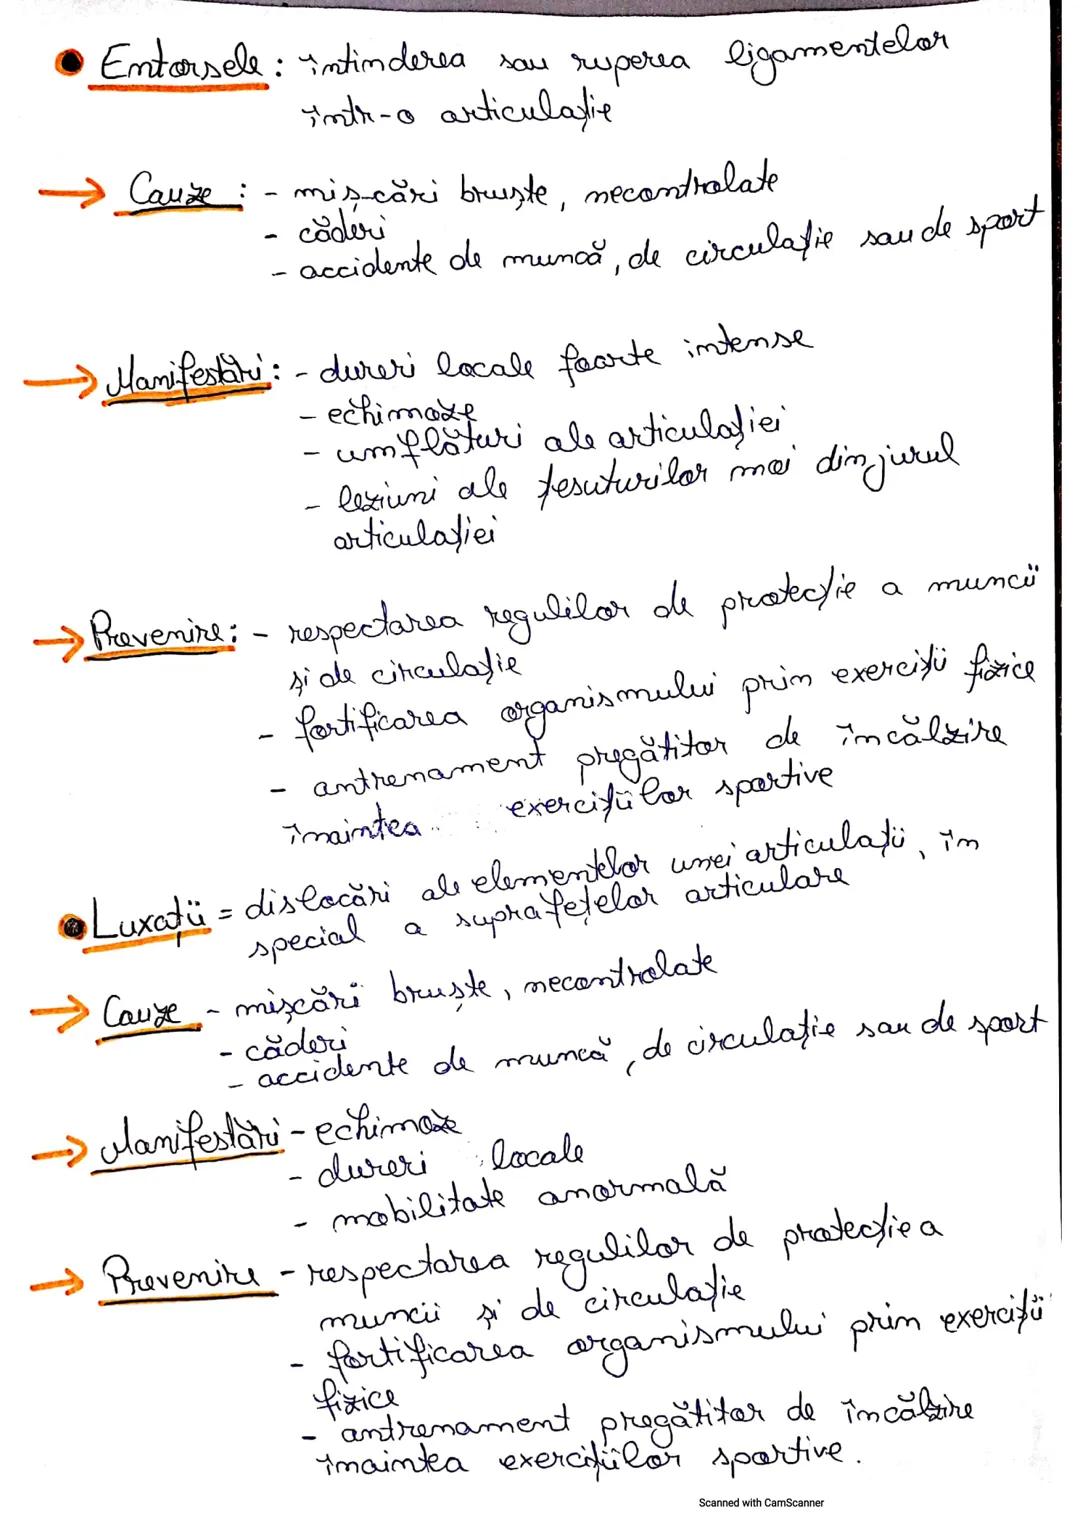 Entorsele : întinderea sau ruperea ligamentelor
într-o articulație
Cauze : - mișcări bruște, necontrolate
- căderi
- accidente de muncă, de circulație sau de sport
Manifestări : - dureri locale foarte intense
- echimoze
- umflături ale articulației
- leziuni ale țesuturilor moi din jurul
articulației
Prevenire : - respectarea regulilor de protecție a muncii
și de circulație
- fortificarea organismului prin exerciții fizice
- antrenament pregătitor de încălzire
înaintea exercițiilor sportive
Luxații = dislocări ale elementelor unei articulații, în
special a suprafețelor articulare
Cauze - mișcări bruște, necontrolate
- căderi
- accidente de muncă, de circulație sau de sport
Manifestări - echimoze
- dureri locale
- mobilitate anormală
Prevenire - respectarea regulilor de protecție a
muncii și de circulație
- fortificarea organismului prin exerciții
fizice
- antrenament pregătitor de încălzire
înaintea exercițiilor sportive.
Scanned with CamScanner